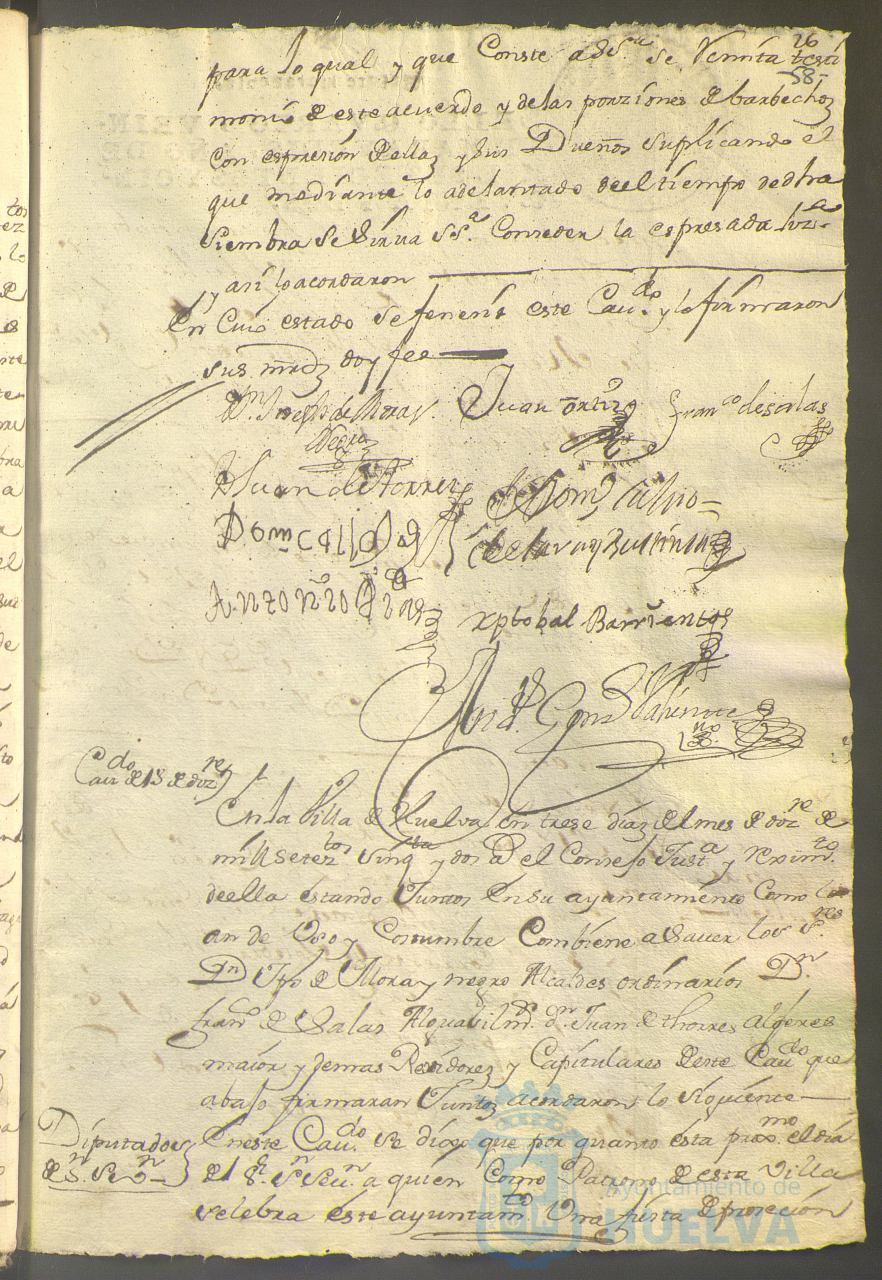 26
58-
para lo qual y que Conste a S.S.ª se Remita testi
monio de este acuerdo y de las porziones de barbechos
Con espresion de ellas y sus Dueños suplicando el
que mediante lo adelantado de el tiempo de dha
siembra se sirua S.Sª. Conseder la espresada liz.ª
y asi lo acordaron
En Cuio estado se feneció este Cau.do y lo firmaron
sus mrds doy fee
Dn. Joseph de Mora y Negro
Juan ortiz
Fran.co de salas
D Juan de Torres
Domº
Antonio Diaz
xptobal Barrientos
Cau.do de 13 de diz.re
En la Villa de Huelva en trese dias del mes de diz.re de
mill setez.tos sinq.ta y dos a.s el Consejo Just.a y reximi.to
de ella estando Juntos en su ayuntamiento Como lo
an de Uso y Costumbre Combiene a sauer los S.res
Dn Jph de Mora y negro Alcaldes ordinarios Dn.
fran.co de Salas Alguasil m.or dn. Juan de thorres alferes
maior y demas Rexidores y Capitulares de este Cau.do que
abajo firmaran Juntos acordaron lo siguiente
Diputados
de Sn. Sevn.
En este Cau.do se dixo que por quanto está prox.mo el dia
de el Sr. Sn Seu.n a quien Como Patrono de esta Villa
selebra este ayuntam.to Una fiesta de prosecion
Ayuntamiento de
HUELVA